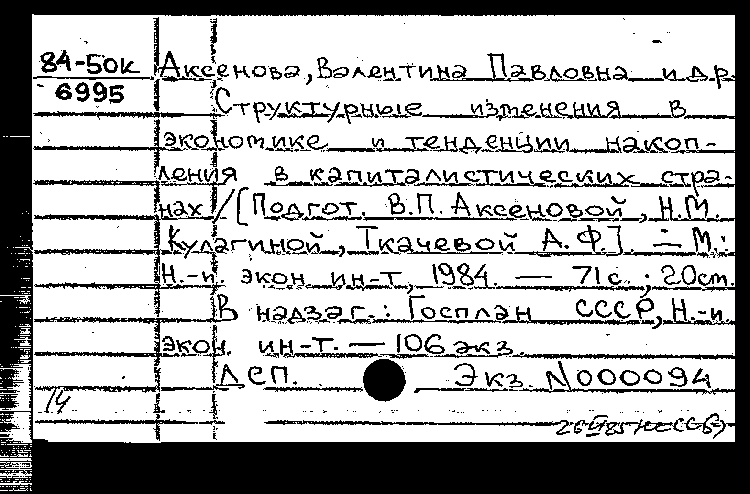 84-50к Аксенова, Валентина Павловна и др.
6995 Структурные изменения в
экономике и тенденции накоп-
ления в капиталистических стра-
нах / [Подгот. В.П. Аксеновой, Н.М.
Кулагиной, Ткачевой А.Ф.]. — М.:
Н.-и. экон. ин-т, 1984. — 71 с.; 20 см.
В надзаг.: Госплан СССР, Н.-и.
экон. ин-т. — 106 экз.
ДСП. Экз. N000094
14